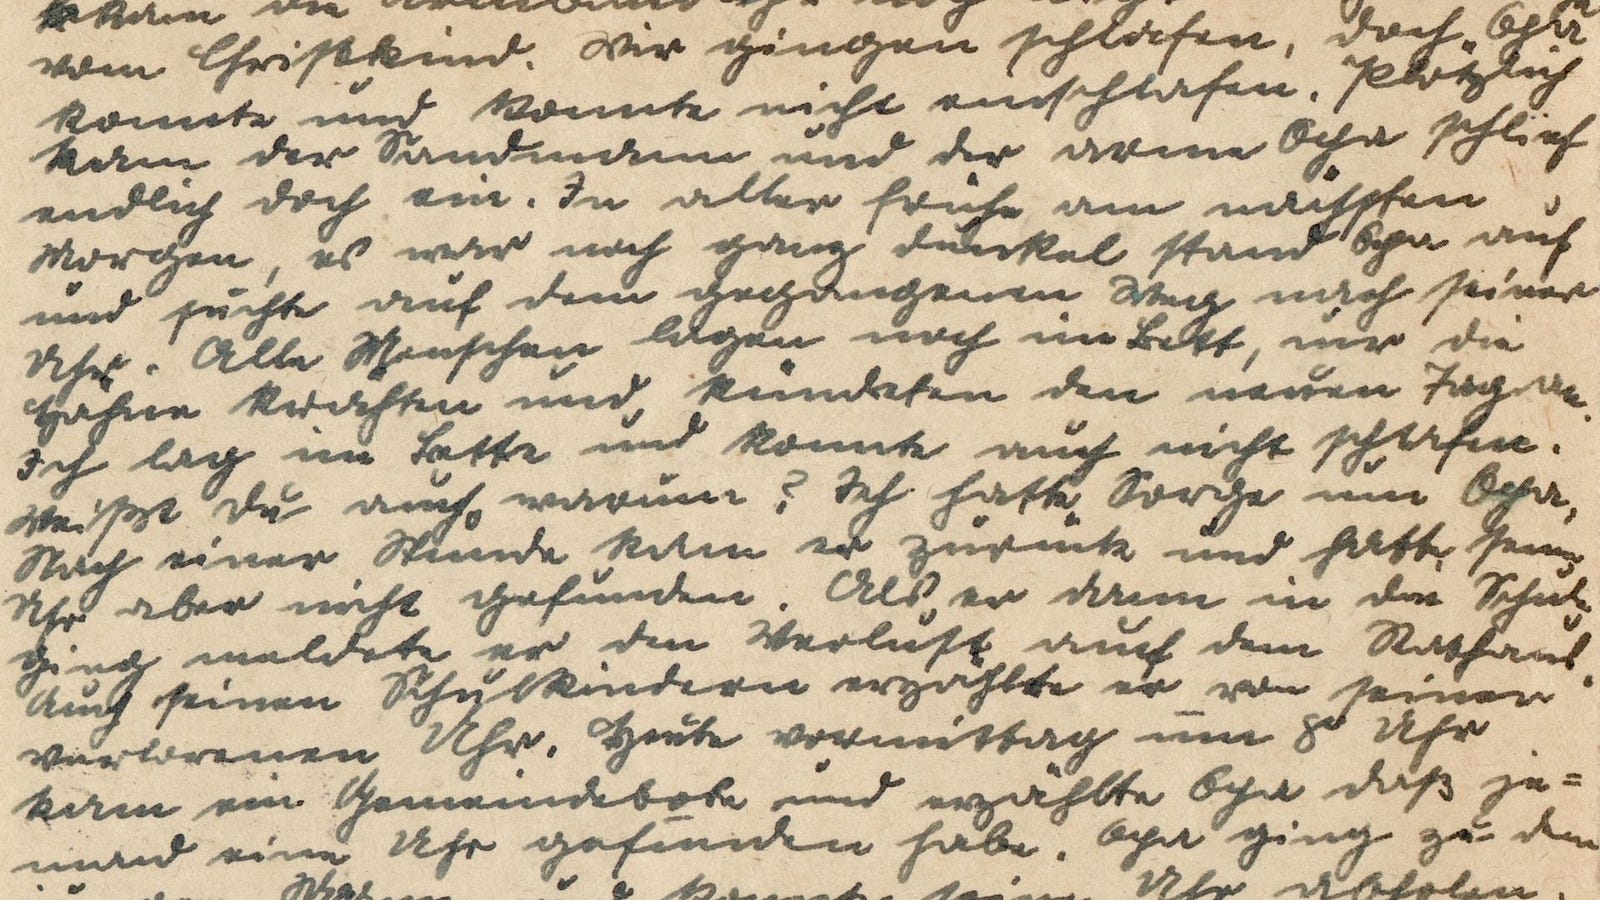 kam die Armbanduhr
vom Christkind. Wir gingen schlafen, doch Opa
konnte und konnte nicht einschlafen. Plötzlich
kam der Sandmann und der arme Opa schlief
endlich doch ein. In aller Frühe am nächsten
Morgen, es war noch ganz dunkel stand Opa auf
und suchte auf dem gegangenen Weg nach seiner
Uhr. Alle Menschen lagen noch im Bett, nur die
Hähne krähten und kündeten den neuen Tag an.
Ich lag im Bette und konnte auch nicht schlafen.
Weißt Du auch warum? Ich hatte Sorge um Opa,
Nach einer Stunde kam er zurück und hatte seine
Uhr aber nicht gefunden. Als er dann in die Schule
ging meldete er den Verlust auf dem Rathaus.
Auch seinen Schulkindern erzählte er von seiner
verlorenen Uhr. Heute vormittag um Uhr
kam ein Gemeindebote und erzählte Opa daß je=
mand eine Uhr gefunden habe. Opa ging zu dem
und konnte seine Uhr abholen.